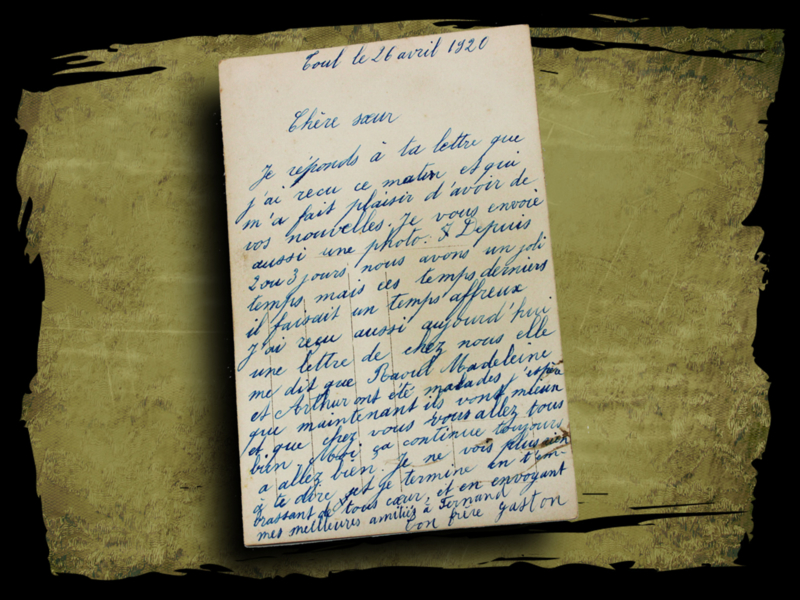 Toul le 26 avril 1920
Chère sœur
Je réponds à ta lettre que
j'ai reçu ce matin et qui
m'a fait plaisir d'avoir de
vos nouvelles. Je vous envoie
aussi une photo. Depuis
2 ou 3 jours nous avons un joli
temps mais ces temps derniers
il faisait un temps affreux
J'ai reçu aussi aujourd'hui
une lettre de chez nous elle
me dit que Raoul Madeleine
et Arthur ont été malades j'espère
que maintenant ils vont mieux
et que chez vous vous allez tous
bien, Moi ça continue toujours
a allez bien. Je ne vois plus rien
à te dire et je termine en t'em-
brassant de tous cœur, et en envoyant
mes meilleures amitiés à Fernand
ton frère Gaston